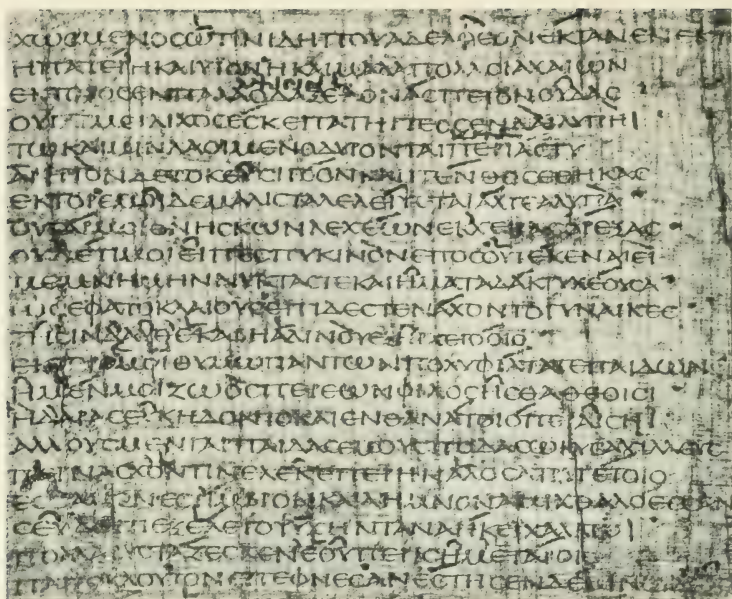 ΧΩΟΜΕΝΟΣΩΤΙΝΙΔΗΠΟΥΑΔΕΛΦΕΟΝΕΚΤΑΝΕΝΕΚΤ
ΗΠΑΤΕΡΗΚΑΙΥΙΟΝΗΚΑΙΜΑΛΑΠΟΛΛΟΙΑΧΑΙΩΝ
ΕΚΤΟΡΟΣΕΝΠΑΛΑΜΗΣΙΝΟΔΑΞΕΛΟΝΑΣΠΕΤΟΝΟΥΔΑΣ
ΟΥΓΑΡΜΕΙΛΙΧΟΣΕΣΚΕΠΑΤΗΡΤΕΟΣΕΝΔΑΙΛΥΓΡΗΙ
ΤΩΚΑΙΜΙΝΛΑΟΙΜΕΝΟΔΥΡΟΝΤΑΙΠΕΡΙΑΣΤΥ
ΑΡΗΤΟΝΔΕΤΟΚΕΥΣΙΓΟΟΝΚΑΙΠΕΝΘΟΣΕΘΗΚΑΣ
ΕΚΤΟΡΕΜΟΙΔΕΜΑΛΙΣΤΑΛΕΛΕΙΨΕΤΑΙΑΛΓΕΑΛΥΓΡΑ
ΟΥΓΑΡΜΟΙΘΝΗΣΚΩΝΛΕΧΕΩΝΕΚΧΕΙΡΑΣΟΡΕΞΑΣ
ΟΥΔΕΤΙΜΟΙΕΙΠΕΣΠΥΚΙΝΟΝΕΠΟΣΟΥΤΕΚΕΝΑΙΕΙ
ΜΕΜΝΗΜΗΝΝΥΚΤΑΣΤΕΚΑΙΗΜΑΤΑΔΑΚΡΥΧΕΟΥΣΑ
ΩΣΕΦΑΤΟΚΛΑΙΟΥΣΕΠΙΔΕΣΤΕΝΑΧΟΝΤΟΓΥΝΑΙΚΕΣ
ΤΗΣΙΝΔΑΥΘΕΚΑΒΗΑΔΙΝΟΥΕΞΗΡΧΕΓΟΟΙΟ
ΕΚΤΟΡΕΜΩΙΘΥΜΩΙΠΑΝΤΩΝΠΟΛΥΦΙΛΤΑΤΕΠΑΙΔΩΝ
ΗΜΕΝΜΟΙΖΩΟΣΠΕΡΕΩΝΦΙΛΟΣΗΣΘΑΘΕΟΙΣΙ
ΗΔΑΡΑΣΕΥΚΗΔΟΝΤΟΚΑΙΕΝΘΑΝΑΤΟΙΟΠΕΡΑΙΣΗΙ
ΑΛΛΟΥΣΜΕΝΓΑΡΠΑΙΔΑΣΕΜΟΥΣΠΟΔΑΣΩΚΥΣΑΧΙΛΛΕΥΣ
ΠΕΡΝΑΣΧΟΝΤΙΝΕΛΕΣΚΕΠΕΡΗΝΑΛΟΣΑΤΡΥΓΕΤΟΙΟ
ΕΣΣΑΜΟΝΕΣΤΙΜΒΡΟΝΚΑΙΛΗΜΝΟΝΑΜΙΧΘΑΛΟΕΣΣΑΝ
ΣΕΥΔΕΠΕΙΕΞΕΛΕΤΟΨΥΧΗΝΤΑΝΑΗΚΕΙΧΑΛΚΩΙ
ΠΟΛΛΑΡΥΣΤΑΖΕΣΚΕΝΕΟΥΠΕΡΙΣΗΜΕΤΑΡΟΙΟ
ΠΑΤΡΟΚΛΟΥΤΟΝΕΠΕΦΝΕΣΑΝΕΣΤΗΣΕΝΔΕΜΙΝ